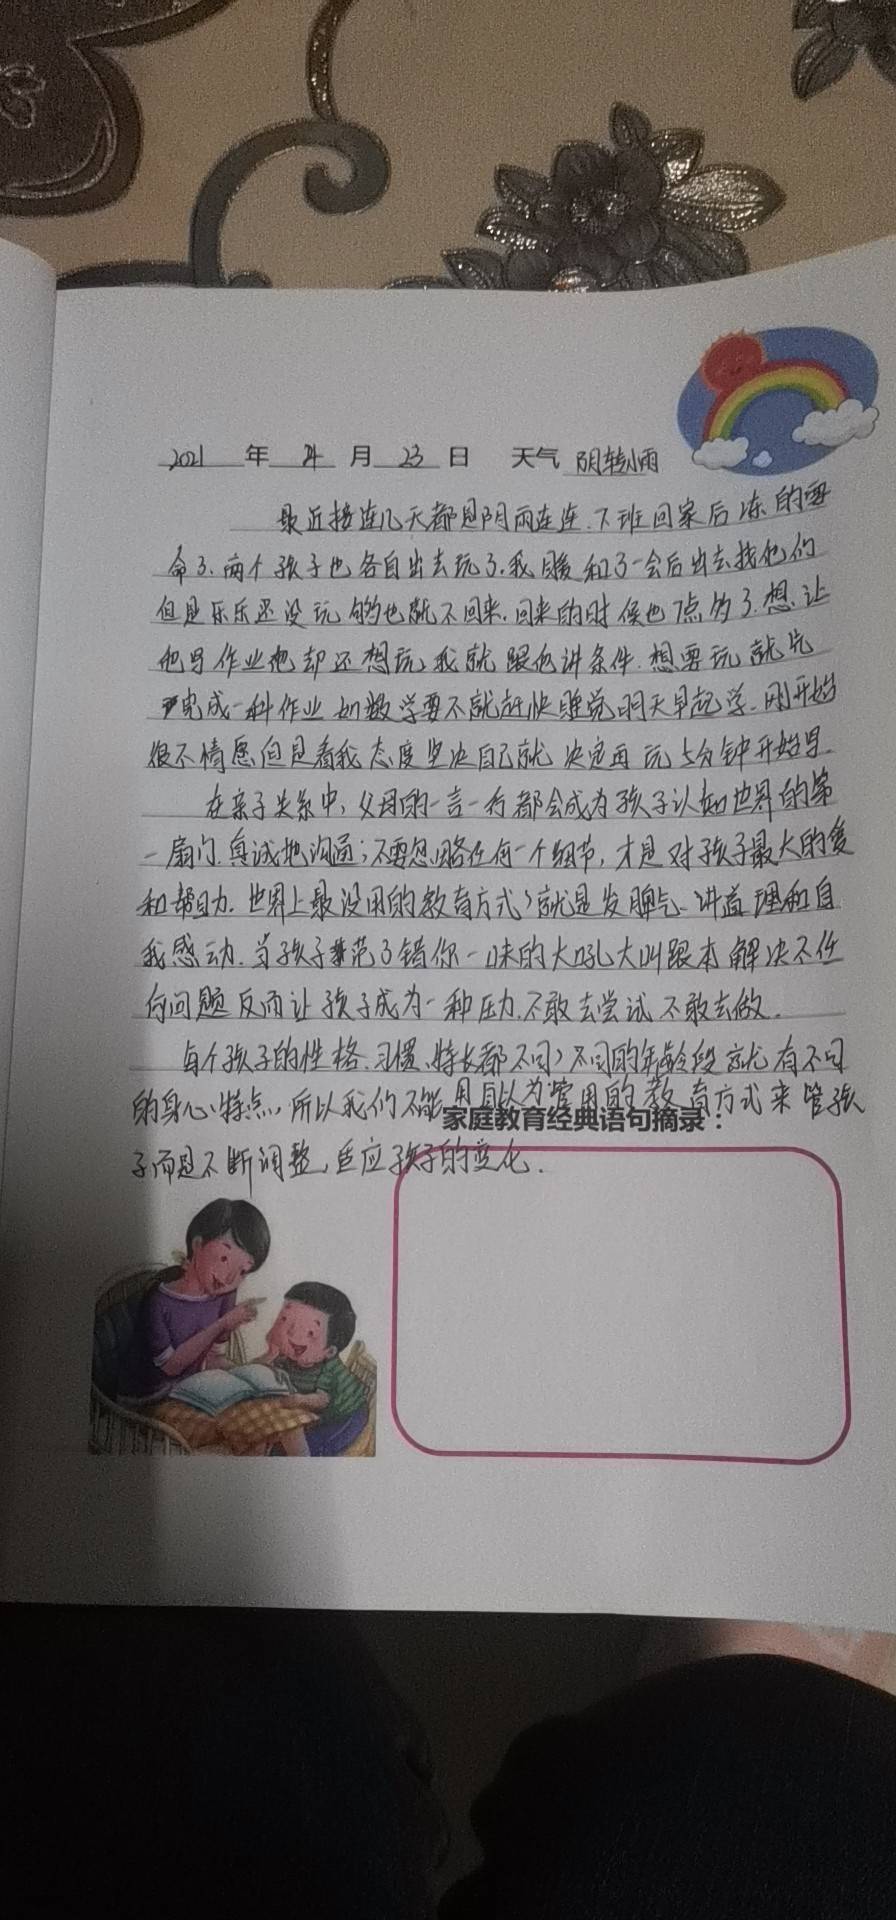 2021 年 4 月 23 日 天气 阴转小雨
最近接连几天都是阴雨连连.下班回家后冻的要
命了.两个孩子也各自出去玩了.我暖和了一会后出去找他们
但是乐乐还没玩够也就不回来.回来的时候也7点多了.想让
他写作业他却还想玩,我就跟他讲条件.想要玩就先
完成一科作业如数学要不就赶快睡觉明天早起学.刚开始
很不情愿但是看我态度坚决自己就决定再玩5分钟开始写.
在亲子关系中,父母的一言一行都会成为孩子认知世界的第
一扇门.真诚地沟通;不要忽略任何一个细节,才是对孩子最大的爱
和帮助.世界上最没用的教育方式,就是发脾气、讲道理和自
我感动.当孩子范了错你一味的大吼大叫跟本解决不任
何问题反而让孩子成为一种压力.不敢去尝试不敢去做.
每个孩子的性格、习惯、特长都不同,不同的年龄段就有不同
的身心特点,所以我们不能用自以为管用的教育方式来管孩
家庭教育经典语句摘录：
子而是不断调整,适应孩子的变化.